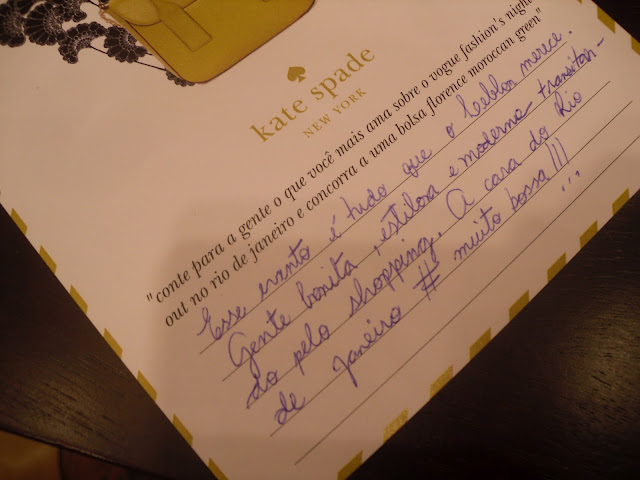 kate spade
NEW YORK
"conte para a gente o que você mais ama sobre o vogue fashion's night
out no rio de janeiro e concorra a uma bolsa florence moroccan green"
Esse evento é tudo que o Leblon merece.
Gente bonita, estilosa e moderna transitan-
do pelo shopping. A cara do Rio
de Janeiro # muito bossa!!!